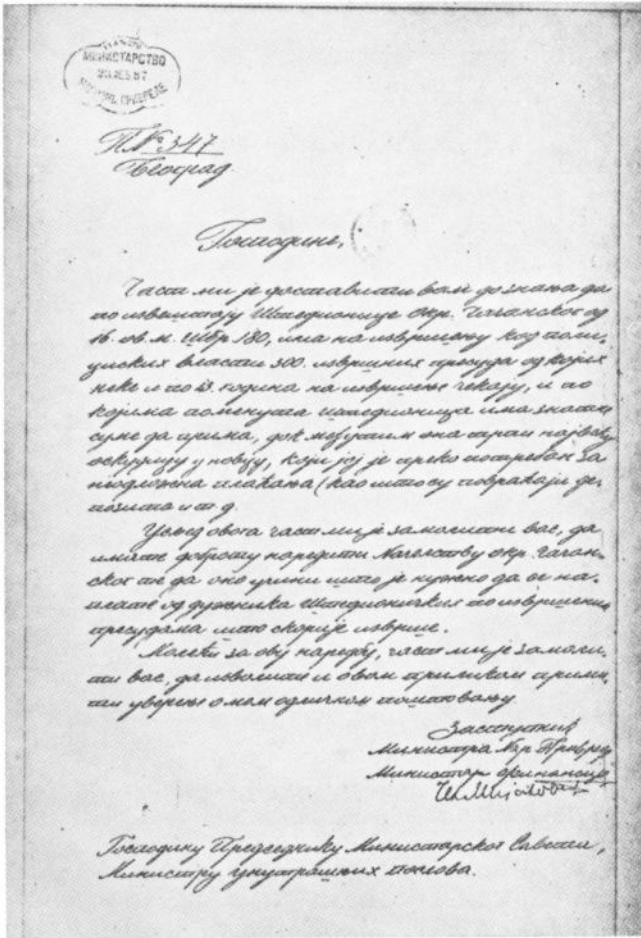 МИНИСТАРСТВО
П№ 347
Београд
Господине,
Част ми је доставити вам до знања да
по извештају Штедионице окр. Чачанског од
16. ов. м. Шбр 180, има на извршењу код поли-
цијских власти 300. извршних пресуда од којих
неке и по 13. година на извршење чекају, и по
којима поменута штедионица има знатне
суме да прима, док међутим она трпи највећу
оскудицу у новцу, који јој је преко потребан за
неодложна плаћања (као што су повраћаји де-
позита и т д.
Услед овога част ми је замолити вас, да
имате доброту наредити Начелству окр. Чачан-
ског те да оно учини што је нужно да се на-
плате од дужника Штедионичких по извршеним
пресудама што скорије изврше.
Молећи за ову наредбу, част ми је замоли-
ти вас, да изволите и овом приликом прими-
ти уверење о мом одличном поштовању
Заступник
Министра Нар. Привреде
Министар финансије
Чед. Мијатовић
Господину Председнику Министарског Савета,
Министру унутрашњих послова.